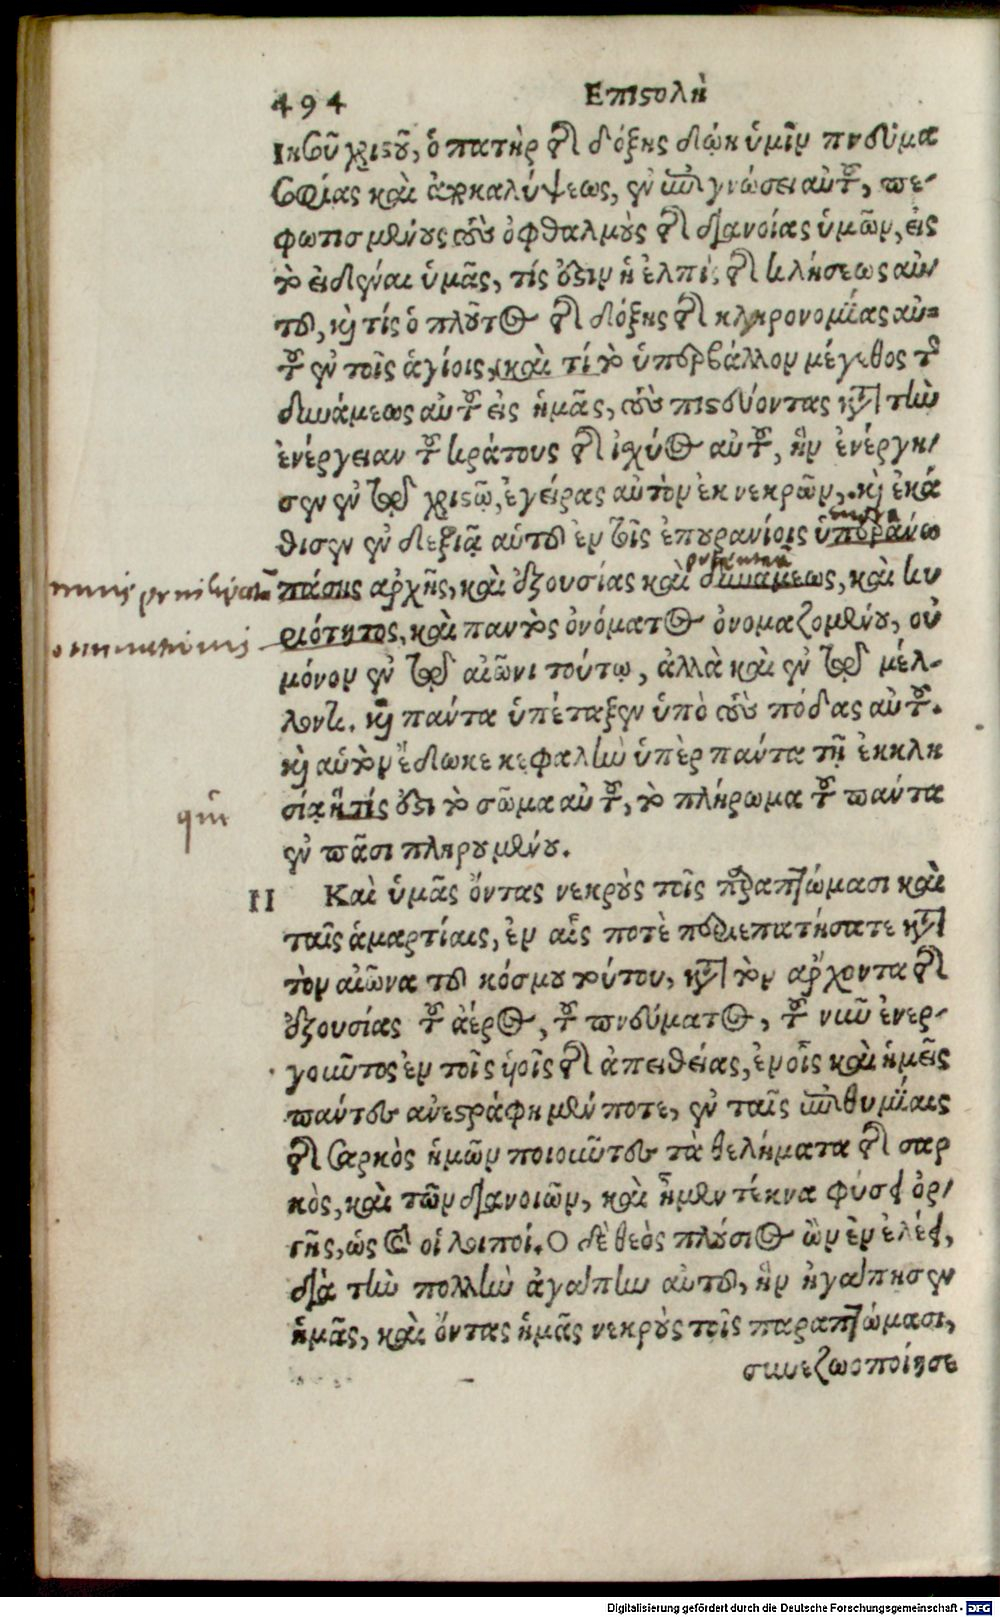 494 Επιστολὴ
Ἰησοῦ χριστοῦ, ὁ πατὴρ τῆς δόξης δώῃ ὑμῖν πνεῦμα
σοφίας καὶ ἀποκαλύψεως, ἐν ἐπιγνώσει αὐτοῦ, πε-
φωτισμένους τοὺς ὀφθαλμοὺς τῆς διανοίας ὑμῶν, εἰς
τὸ εἰδέναι ὑμᾶς, τίς ἐστιν ἡ ἐλπὶς τῆς κλήσεως αὐ-
τοῦ, καὶ τίς ὁ πλοῦτος τῆς δόξης τῆς κληρονομίας αὐ-
τοῦ ἐν τοῖς ἁγίοις, καὶ τί τὸ ὑπερβάλλον μέγεθος τῆς
δυνάμεως αὐτοῦ εἰς ἡμᾶς, τοὺς πιστεύοντας κατὰ τὴν
ἐνέργειαν τοῦ κράτους τῆς ἰσχύος αὐτοῦ, ἣν ἐνέργη-
σεν ἐν τῷ χριστῷ, ἐγείρας αὐτὸν ἐκ νεκρῶν, καὶ ἐκά
θισεν ἐν δεξιᾷ αὑτοῦ ἐν τοῖς ἐπουρανίοις ὑπεράνω
supra
πάσης ἀρχῆς, καὶ ἐξουσίας καὶ δυνάμεως, καὶ κυ
ριότητος, καὶ παντὸς ὀνόματος ὀνομαζομένου, οὐ
μόνον ἐν τῷ αἰῶνι τούτῳ, ἀλλὰ καὶ ἐν τῷ μέλ-
λοντι. καὶ πάντα ὑπέταξεν ὑπὸ τοὺς πόδας αὐτοῦ.
καὶ αὐτὸν ἔδωκε κεφαλὴν ὑπὲρ πάντα τῇ ἐκκλη
qui
σίᾳ ἥτίς ἐστι τὸ σῶμα αὐτοῦ, τὸ πλήρωμα τοῦ πάντα
ἐν πᾶσι πληρουμένου.
II Καὶ ὑμᾶς ὄντας νεκροὺς τοῖς παραπτώμασι καὶ
ταῖς ἁμαρτίαις, ἐν αἷς ποτὲ περιεπατήσατε κατὰ
τὸν αἰῶνα τοῦ κόσμου τούτου, κατὰ τὸν ἄρχοντα τῆς
ἐξουσίας τοῦ ἀέρος, τοῦ πνεύματος, τοῦ νῦν ἐνερ-
γοῦντος ἐν τοῖς υἱοῖς τῆς ἀπειθείας, ἐν οἷς καὶ ἡμεῖς
πάντες ἀνεστράφημέν ποτε, ἐν ταῖς ἐπιθυμίαις
τῆς σαρκὸς ἡμῶν ποιοῦντες τὰ θελήματα τῆς σαρ
κὸς, καὶ τῶν διανοιῶν, καὶ ἦμεν τέκνα φύσει ὀρ-
γῆς, ὡς καὶ οἱ λοιποί. Ο δὲ θεὸς πλούσιος ὢν ἐν ἐλέει,
διὰ τὴν πολλὴν ἀγάπην αὐτοῦ, ἣν ἠγάπησεν
ἡμᾶς, καὶ ὄντας ἡμᾶς νεκροὺς τοῖς παραπτώμασι,
συνεζωοποίησε
Digitalisierung gefördert durch die Deutsche Forschungsgemeinschaft - DFG